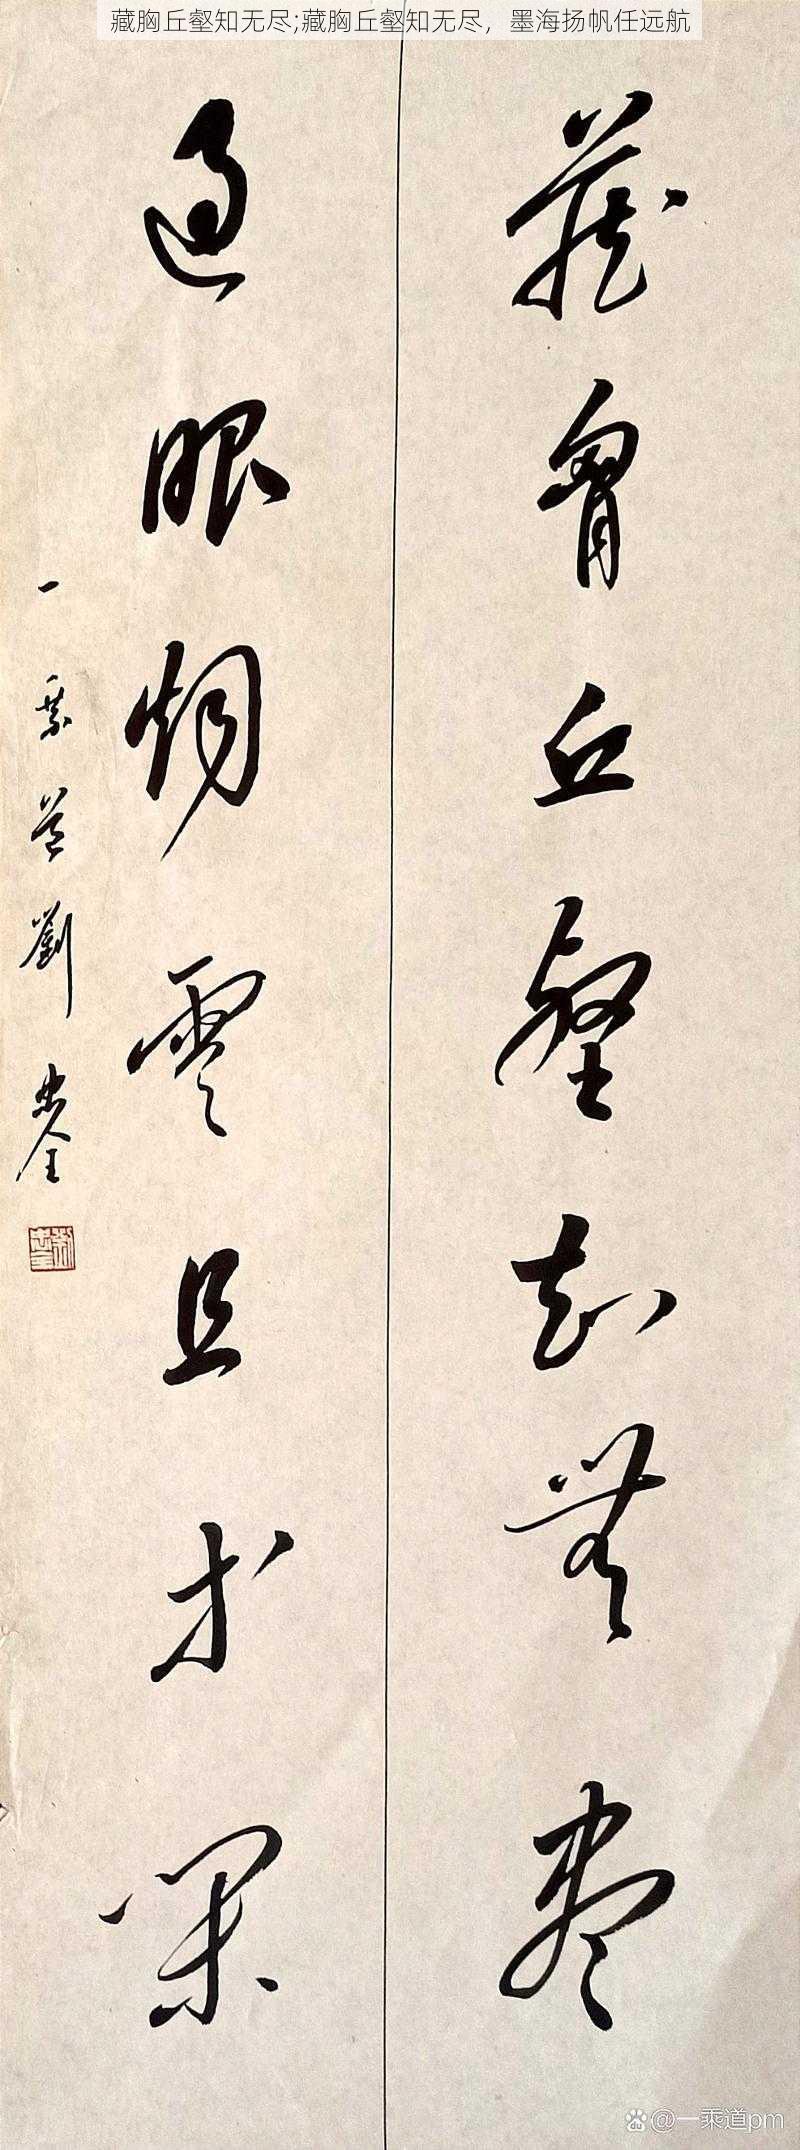 藏胸丘壑知无尽;藏胸丘壑知无尽，墨海扬帆任远航
藏胷丘壑知無盡
過眼烟雲且
一乘道劉忠全
@一乘道pm